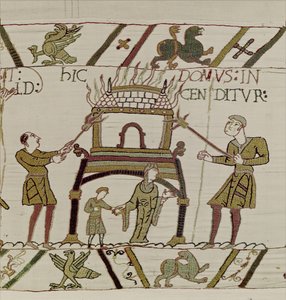 T:
ID:
hIC
DOMVS:IN
CENDITVR: